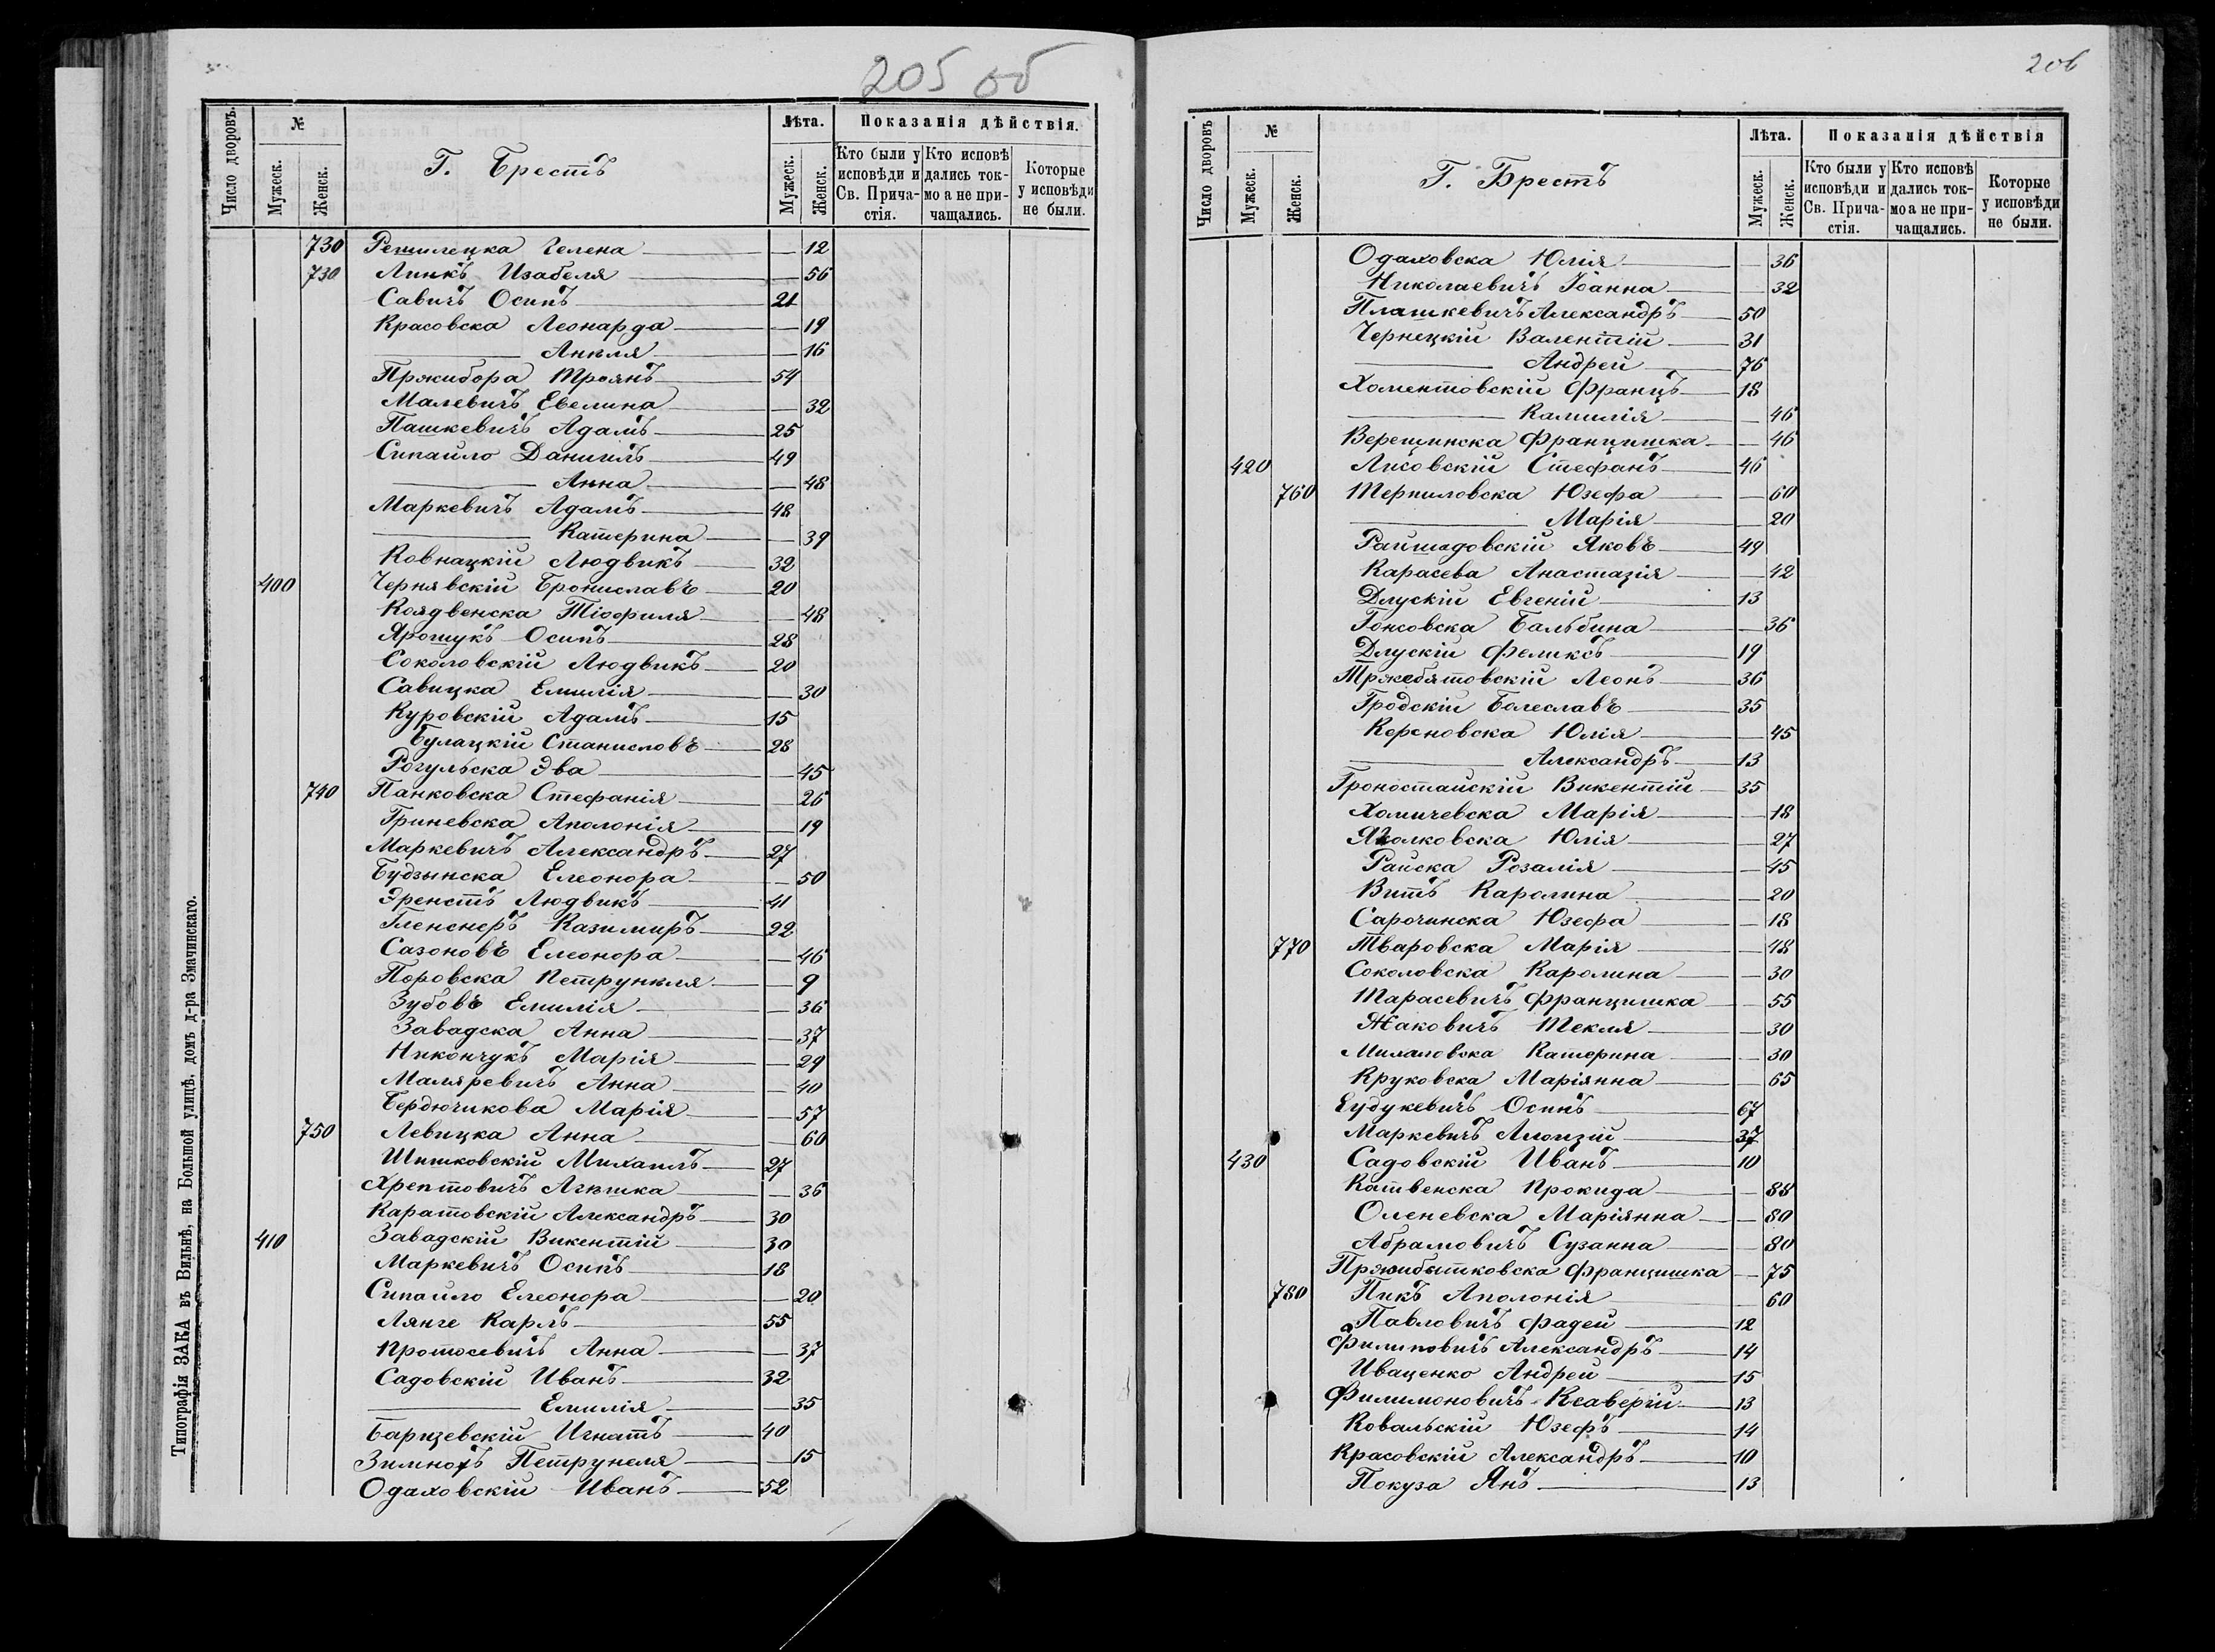 205 об
Число дворовъ.
№
Мужеск.
Женск.
Г. Брестъ
Лѣта.
Мужеск.
Женск.
Показанія дѣйствія.
Кто были у исповѣди и Св. Прича-стія.
Кто исповѣ дались ток-мо а не при-чащались.
Которые у исповѣди не были.
730 Решилецка Гелена — 12
730 Линкъ Изабеля — 56
Савичъ Осипъ 21
Красовска Леонарда — 19
— Анеля — 16
Пржибора Троянъ 54
Малевичъ Евелина — 32
Пашкевичъ Адамъ 25
Сипайло Даніилъ 49
— Анна — 48
Маркевичъ Адамъ 48
— Катерина — 39
Ковнацкій Людвикъ 32
400 Чернявскій Брониславъ 20
Коядвенска Тіофиля — 48
Ярошукъ Осипъ 28
Соколовскій Людвикъ 20
Савицка Емилія — 30
Куровскій Адамъ 15
Булацкій Станиславъ 28
Рогульска Эва — 45
740 Панковска Стефанія — 26
Гриневска Аполонія — 19
Маркевичъ Александръ 27
Будзынска Елеонора — 50
Эренстъ Людвикъ 41
Гленснеръ Казимиръ 22
Сазоновъ Елеонора — 46
Поровска Петрунеля — 9
Зубовъ Емилія — 36
Завадска Анна — 37
Никончукъ Марія — 29
Маляревичъ Анна — 40
Бердючикова Марія — 57
750 Левицка Анна — 60
Шишковскій Михаилъ 27
Хрептовичъ Агнѣшка — 36
Каратовскій Александръ 30
410 Завадскій Викентій 30
Маркевичъ Осипъ 18
Сипайло Елеонора — 20
Лянге Карлъ 55
Протосевичъ Анна — 37
Садовскій Иванъ 32
— Емилія — 35
Барщевскій Игнатъ 40
Петрунеля — 15
Одаховскій Иванъ 52
Типографія ЗАКА въ Вильнѣ, на Большой улицѣ, домъ д-ра Змачинскаго.
206
Число дворовъ
№
Мужеск.
Женск.
Г. Брестъ
Лѣта.
Мужеск.
Женск.
Показанія дѣйствія
Кто были у исповѣди и Св. Прича-стія.
Кто исповѣ дались ток-моа не при-чащались.
Которые у исповѣди не были.
Одаховска Юлія — 36
Николаевичъ Іоанна — 32
Плашкевичъ Александръ 50
Чернецкій Валентій 31
— Андрей 76
Хоментовскій Францъ 18
— Камилія — 46
Верещинска Францишка — 46
420 Лисовскій Стефанъ 46
760 Терпиловска Юзефа — 60
— Марія — 20
Райшадовскій Яковъ 49
Карасева Анастазія — 42
Длускій Евгеній 13
Гонсовска Бальбина — 36
Длускій Феликсъ 19
Тржебятовскій Леонъ 36
Гродскій Болеславъ 35
Керсновска Юлія — 45
— Александръ 13
Гроностайскій Викентій 35
Хомичевска Марія — 18
Юлія — 27
Райска Розалія — 45
Витъ Каролина — 20
Сарочинска Юзефа — 18
770 Тваровска Марія — 48
Соколовска Каролина — 30
Тарасевичъ Францишка — 55
Жаковичъ Текля — 30
Милаловска Катерина — 30
Круковска Маріянна — 65
Осипъ 67
Маркевичъ Алоизій 37
430 Садовскій Иванъ 10
Катвенска Прокида — 88
Оленевска Маріянна — 80
Абрамовичъ Сузанна — 80
Пржибытковска Францишка — 75
780 Пикъ Аполонія — 60
Павловичъ Фадей 12
Филиповичъ Александръ 14
Иваценко Андрей 15
Филимоновичъ Ксаверій 13
Ковальскій Юзефъ 14
Красовскій Александръ 10
Покуза Янъ 13